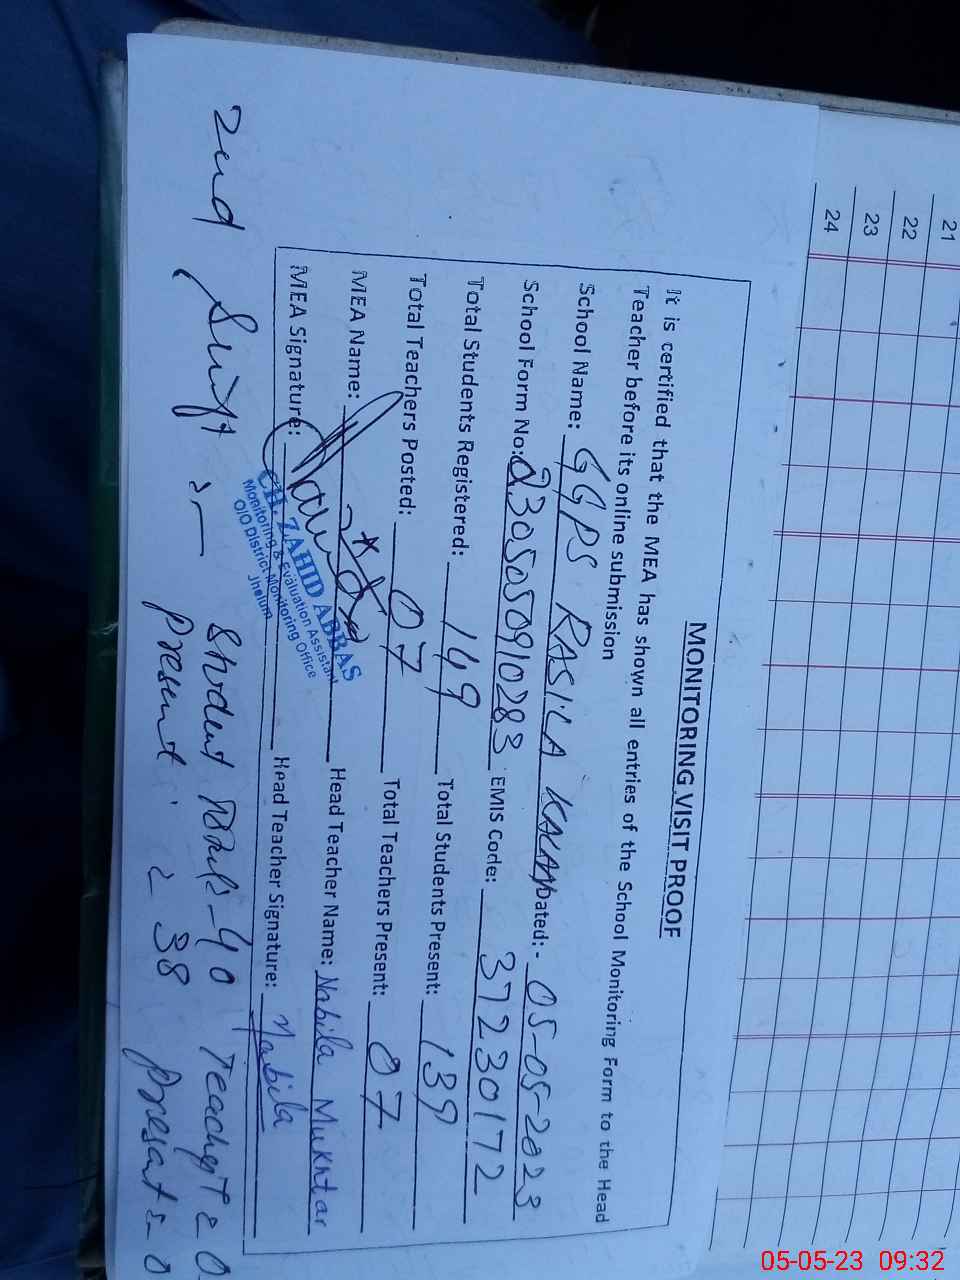 21
22
23
24
MONITORING VISIT PROOF
It is certified that the MEA has shown all entries of the School Monitoring Form to the Head
Teacher before its online submission
School Name: GGPS RASILA KALAN Dated:- 05-05-2023
School Form No: 2305050910283 EMIS code: 37230172
Total Students Registered: 149 Total Students Present: 139
Total Teachers Posted: 07 Total Teachers Present: 07
MEA Name: Head Teacher Name: Nabila Mukhtar
MEA Signature: Head Teacher Signature: Nabila
CH. ZAHID ABBAS
Monitoring & Evaluation Assistant
O/O District Monitoring Office
Jhelum
2nd Shift :- Student Total - 40 Teacher = 0
Present = 38 Present = 0
05-05-23 09:32